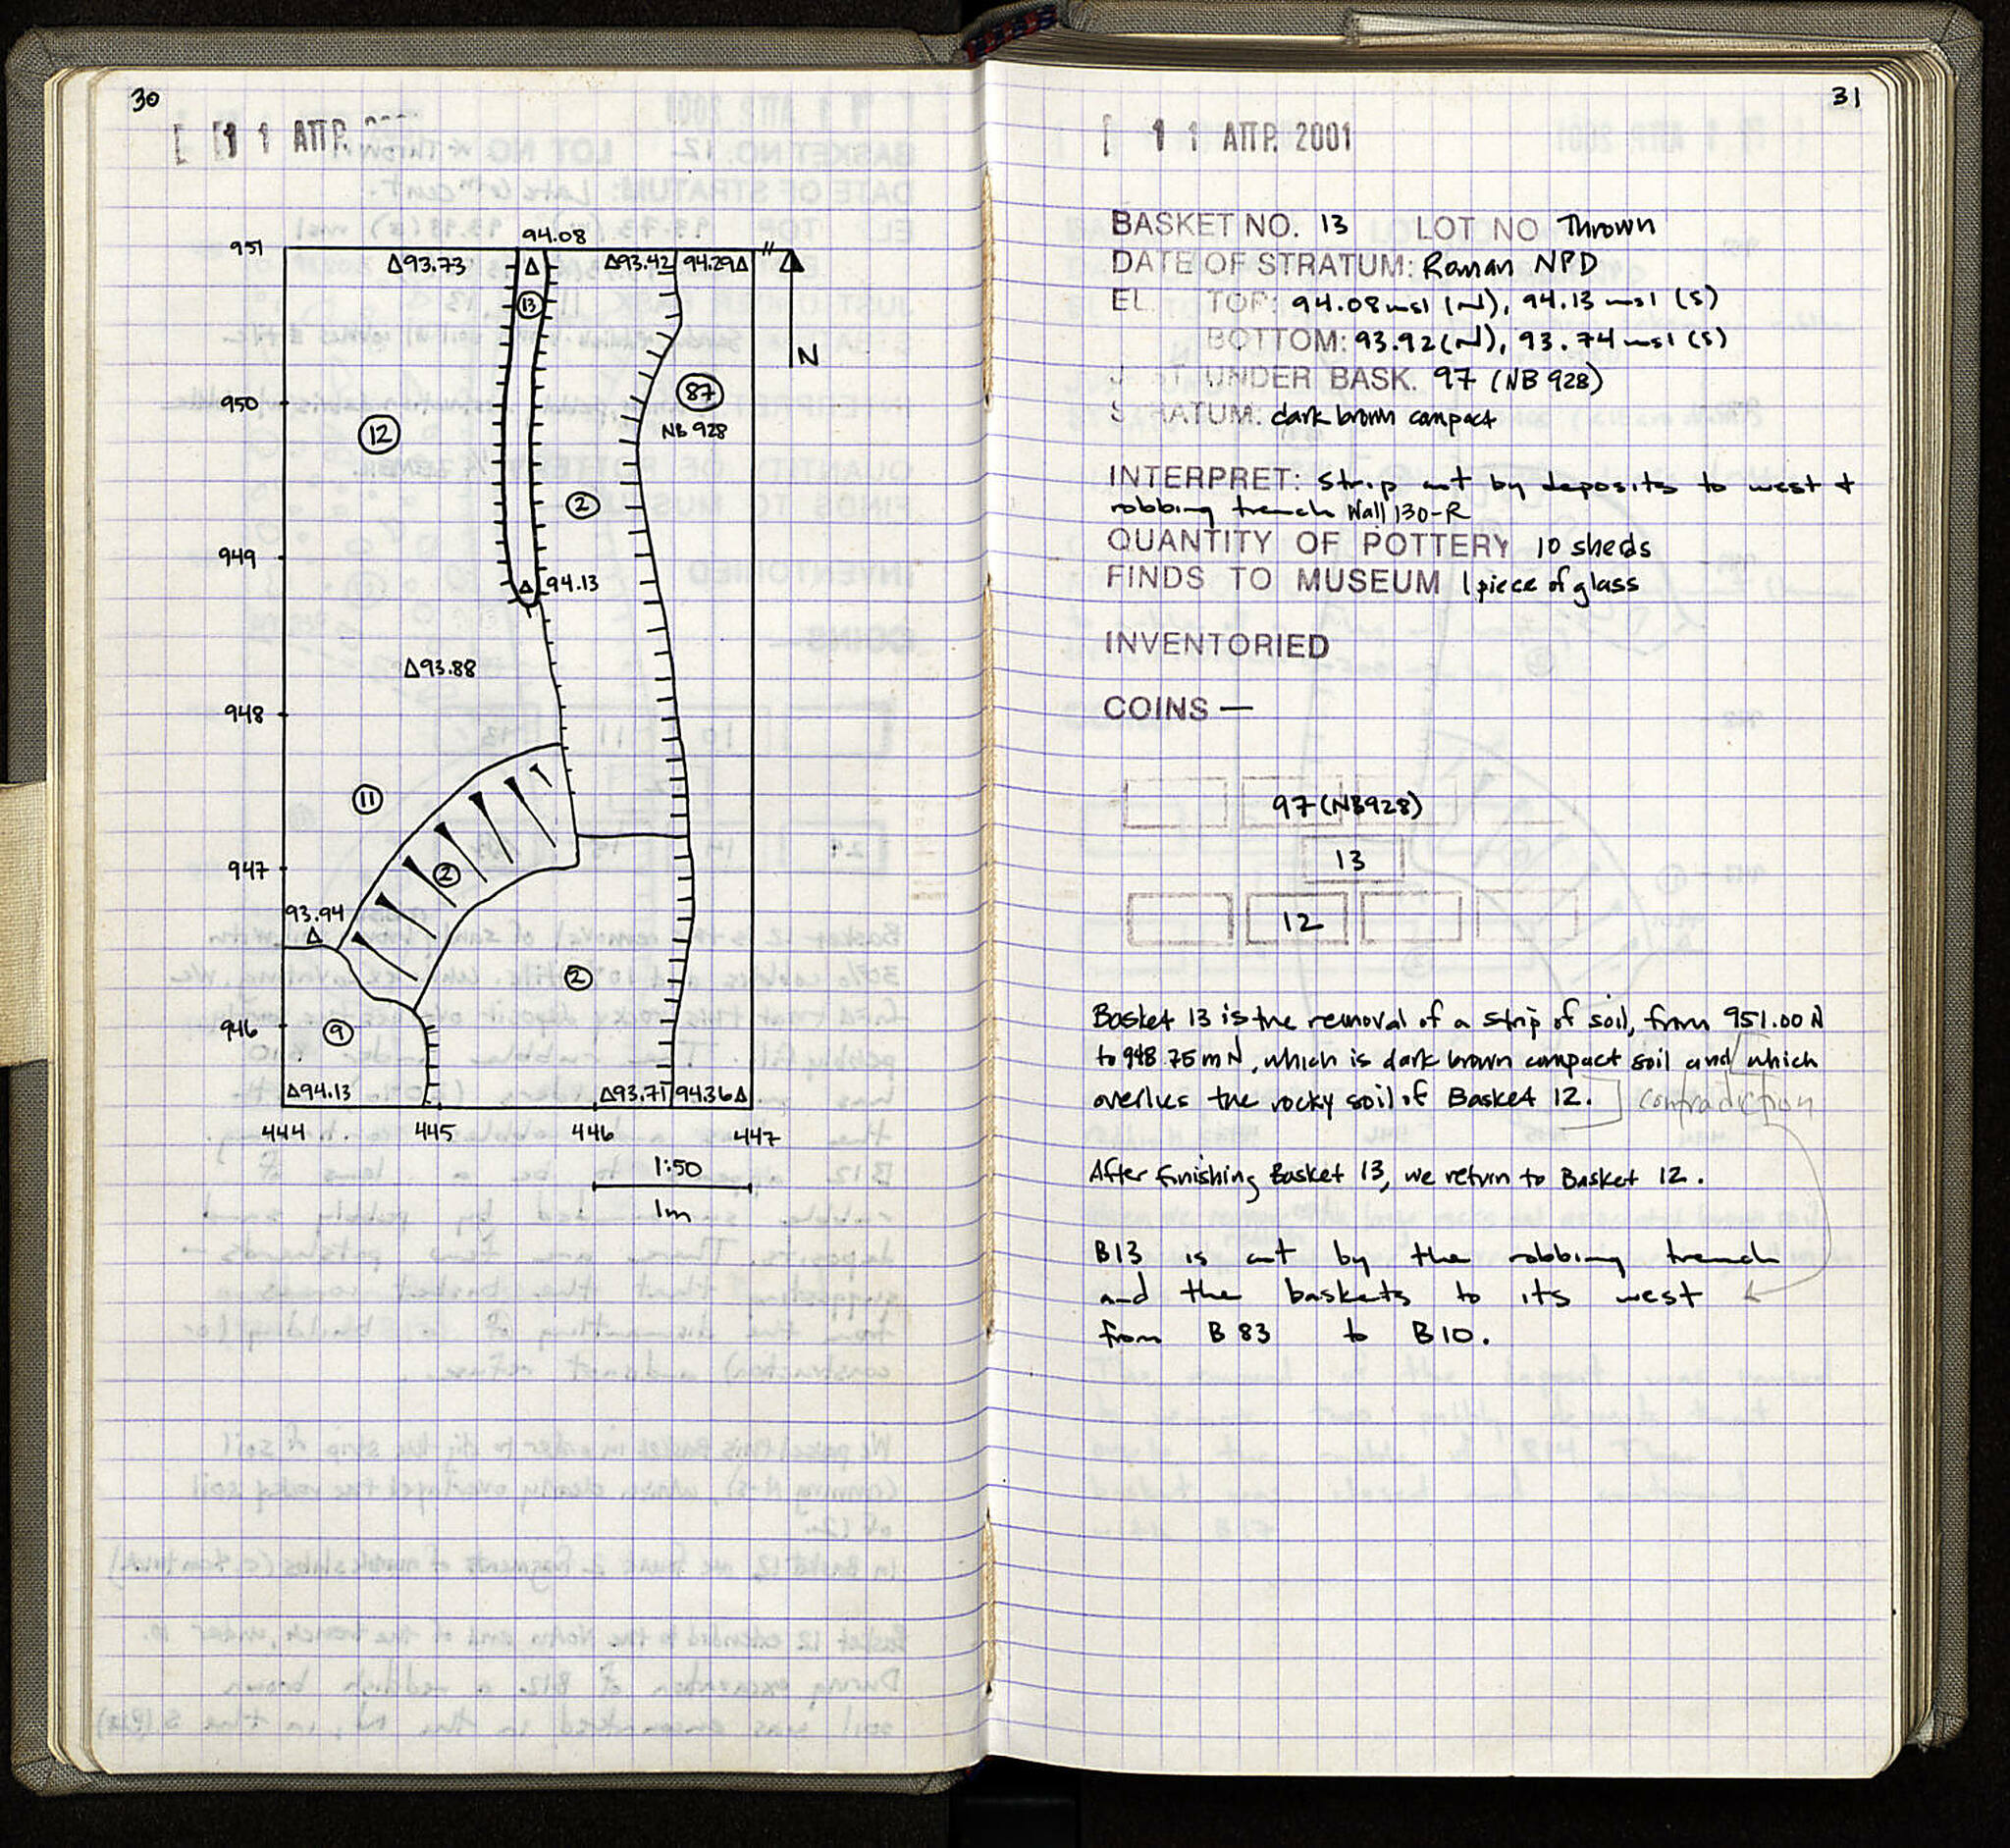 30
11 ΑΠΡ.
951
94.08
Δ93.73
Δ
Δ93.42
94.29Δ
N
13
950
12
87
NB 928
2
949
Δ 94.13
Δ93.88
948
11
947
2
93.94
Δ
2
946
9
Δ94.13
Δ93.71
94.36Δ
444
445
446
447
1:50
1m
31
11 ΑΠΡ. 2001
BASKET NO. 13 LOT NO Thrown
DATE OF STRATUM: Roman NPD
EL. TOP: 94.08 msl (N), 94.13 msl (S)
BOTTOM: 93.92 (N), 93.74 msl (S)
J T UNDER BASK. 97 (NB 928)
S RATUM: dark brown compact
INTERPRET: Strip cut by deposits to west +
robbing trench Wall 130-R
QUANTITY OF POTTERY 10 sheds
FINDS TO MUSEUM 1 piece of glass
INVENTORIED
COINS —
97 (NB928)
13
12
Basket 13 is the removal of a strip of soil, from 951.00 N
to 948.75 m N, which is dark brown compact soil and which
overlies the rocky soil of Basket 12. ] contradiction
After finishing Basket 13, we return to Basket 12.
B13 is cut by the robbing trench
and the baskets to its west
from B 83 to B 10.